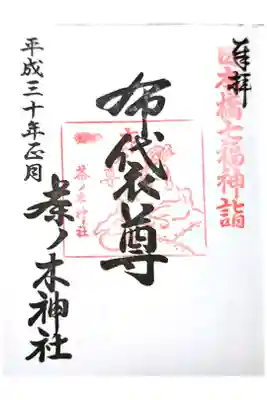 奉拝
日本橋七福神詣
布袋尊
茶ノ木神社
平成三十年正月
茶ノ木神社